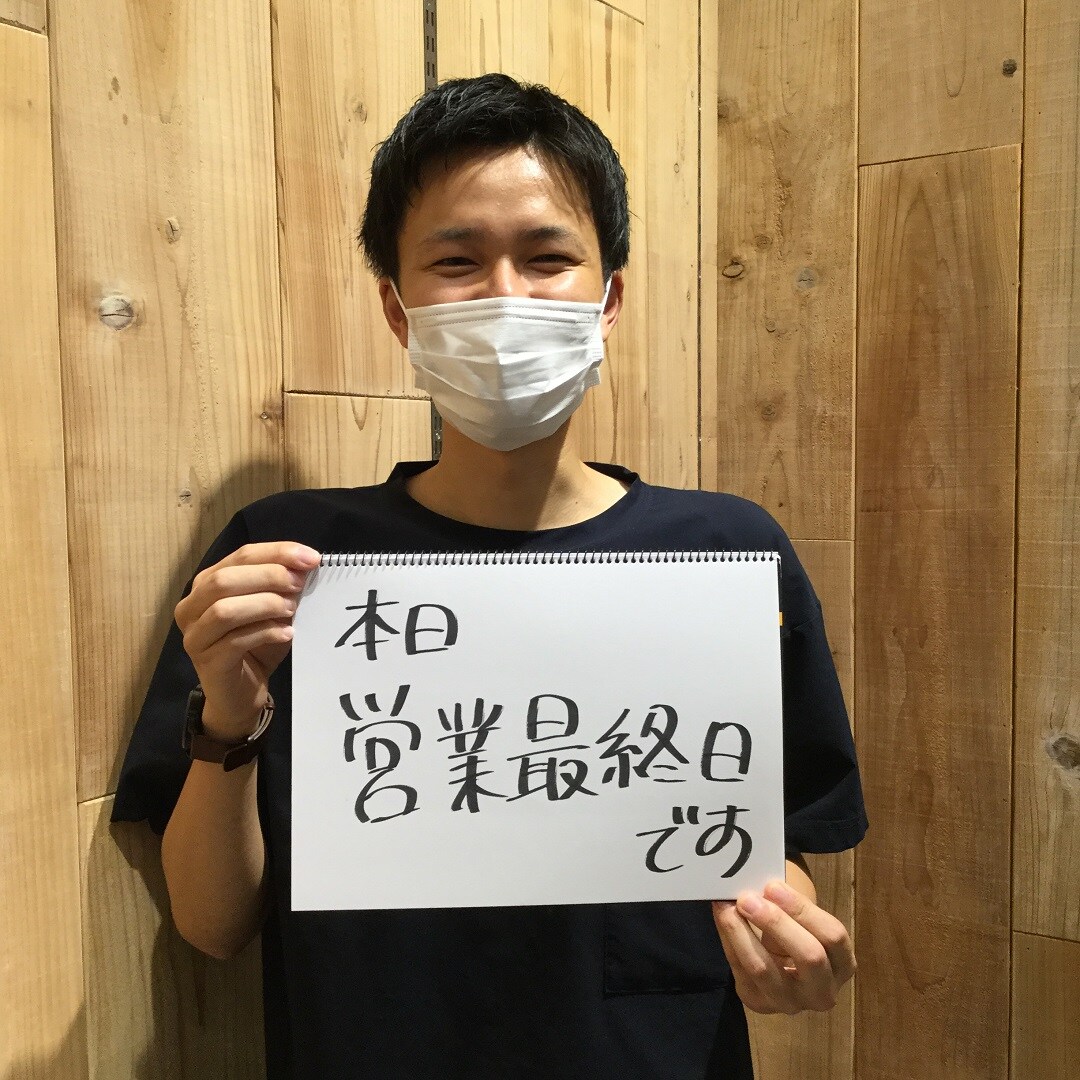 本日
営業最終日
です